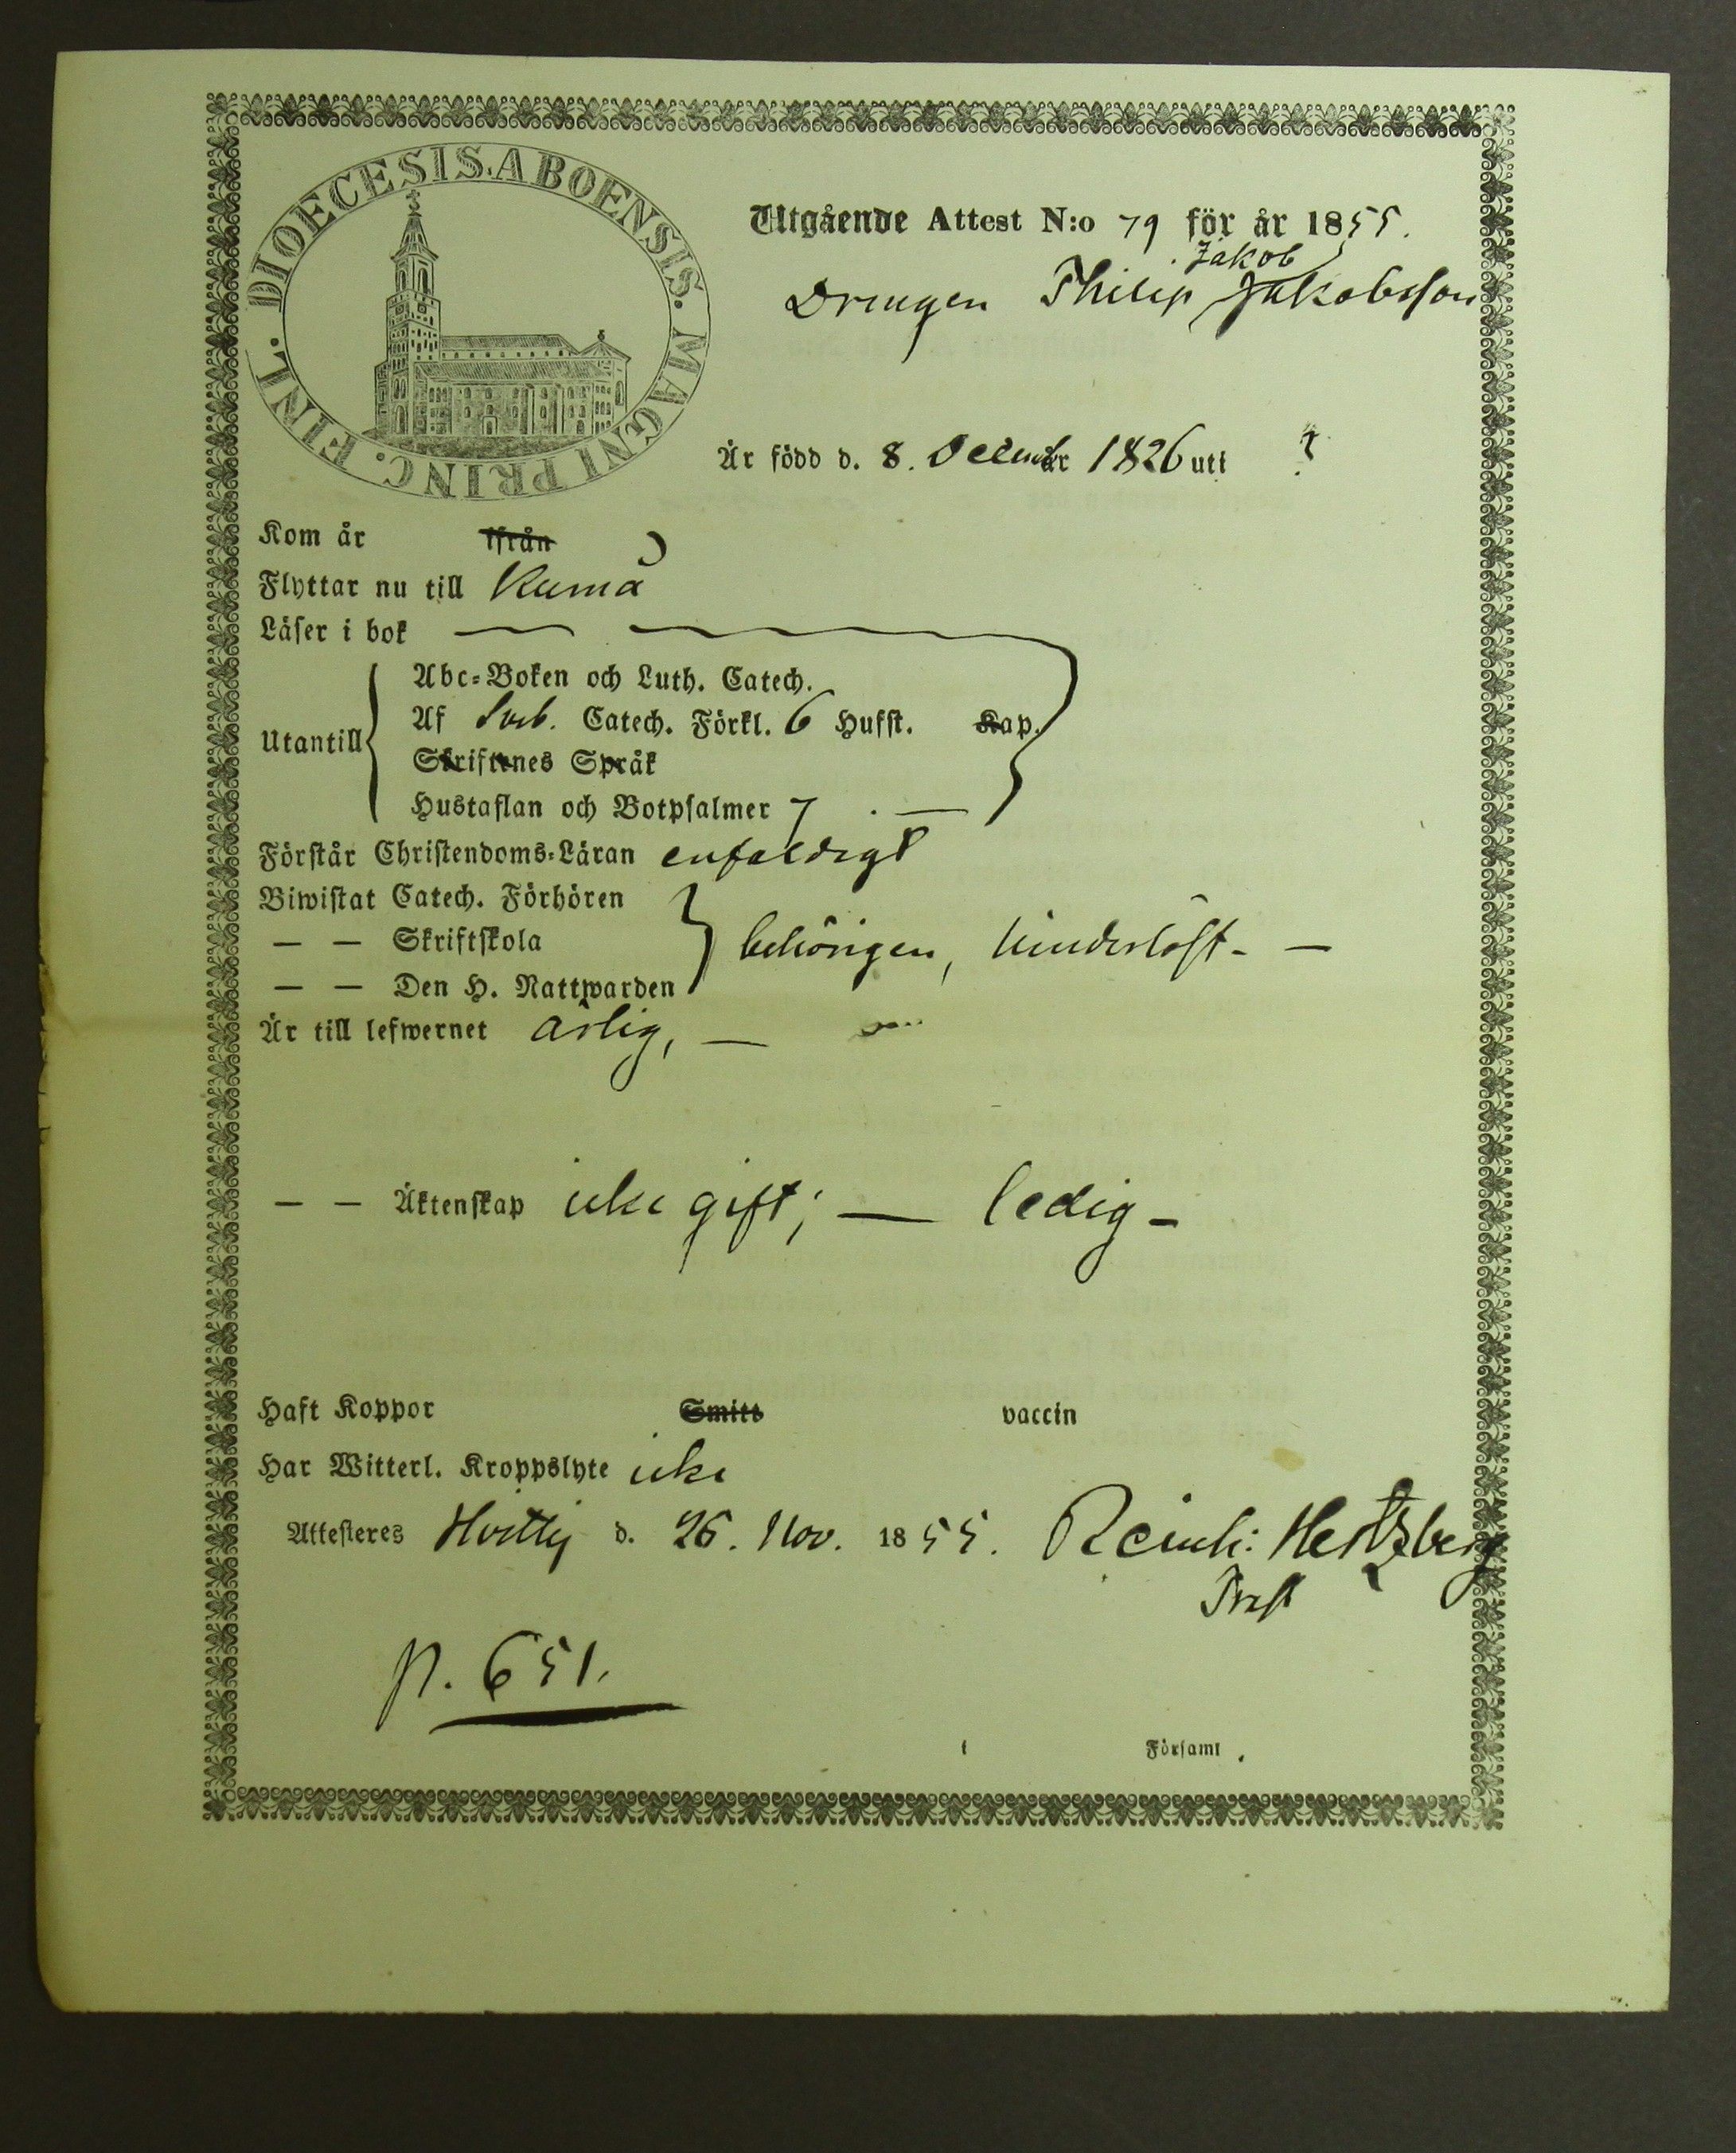 DIOECESIS. ABOENSIS. MAGNI PRINC. FINL.
Utgående Attest N:o 79 för år 1855.
Jakob
Drengen Philip Jakobsson
Är född d. 8. December 1826 uti ?
Kom år ifrån
Flyttar nu till Kumå
Läser i bok
Utantill
Abc-Boken och Luth. Catech.
Af Sveb. Catech. Förkl. 6 Hufst. Kap.
Skriftenes Språk
Hustaflan och Botpsalmer 7 . —
Förstår Christendoms-Läran enfaldigt
Biwistat Catech. Förhören
— — Skriftskola
behörigen, hinderlöst - —
— — Den H. Nattwarden
Är till lefwernet ärlig, —
— — Äktenskap icke gift; — ledig -
Haft Koppor Smitt vaccin
Har Witterl. Kroppslyte icke
Attesteres d. 26. Nov. 1855. Reinh: Hertzberg
Prost
p. 651.
i Församl.